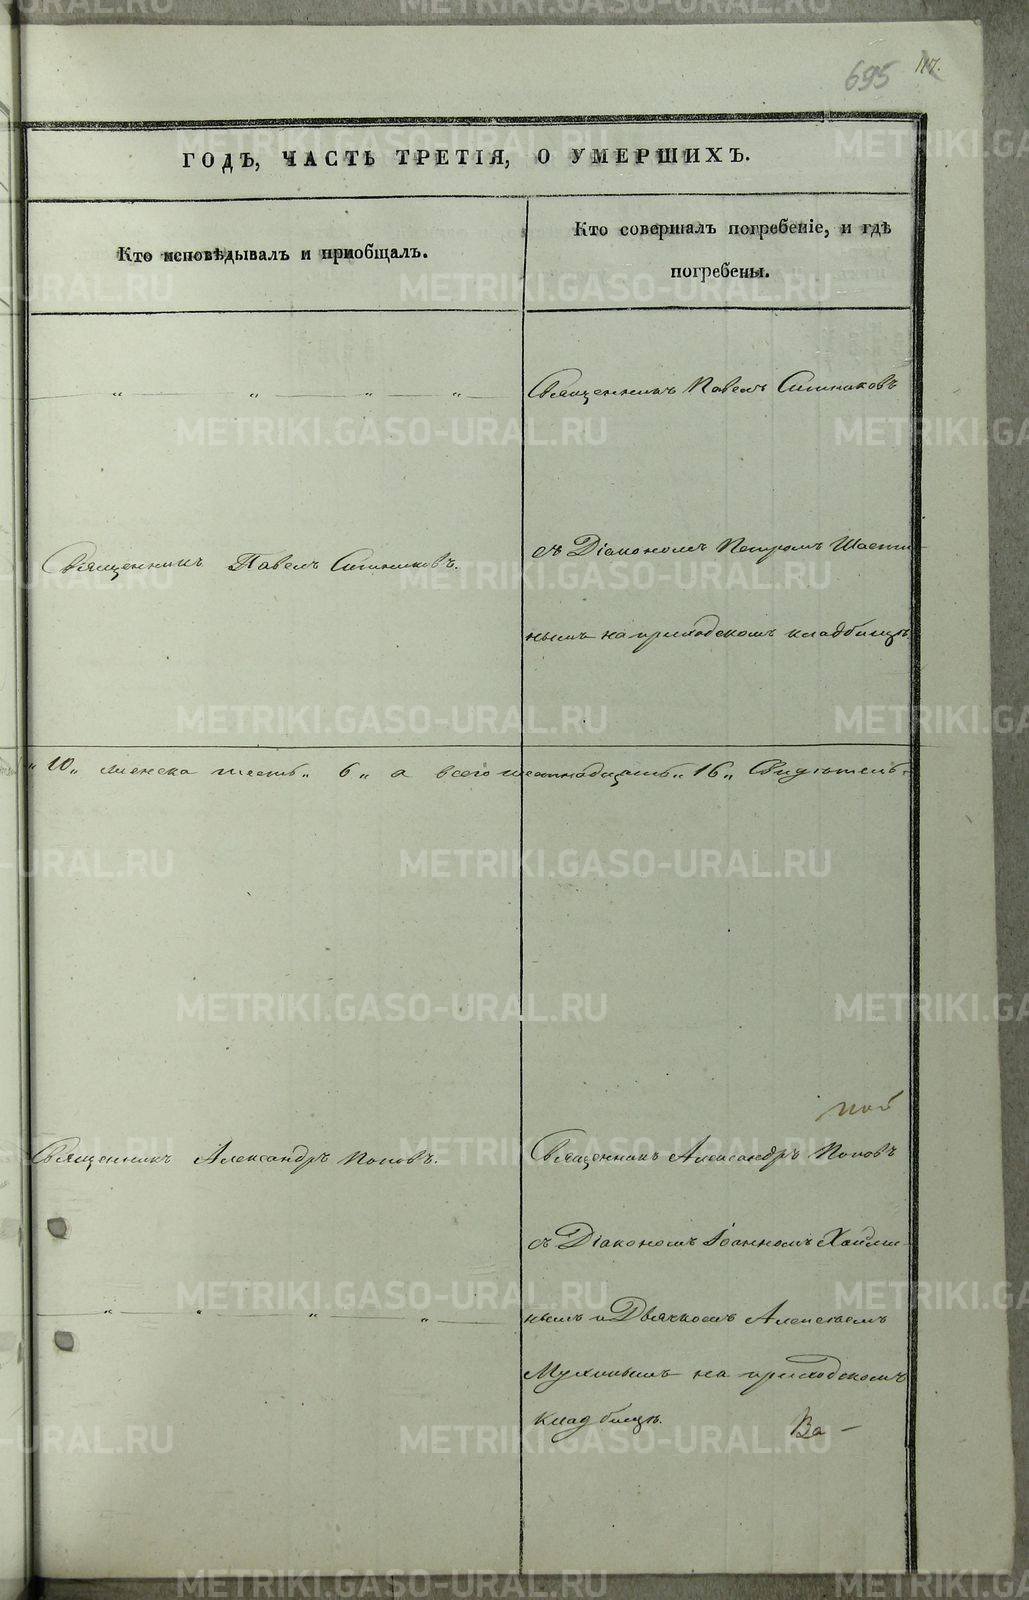 695 117.
ГОДЪ, ЧАСТЬ ТРЕТІЯ, О УМЕРШИХЪ.
Кто исповѣдывалъ и пріобщалъ.
Кто совершалъ погребеніе, и гдѣ
погребены.
„ „ „ „
Священникъ Павелъ Ситниковъ
Священникъ Павелъ Ситниковъ.
съ Діакономъ Петромъ
нымъ на приходскомъ кладбищѣ.
„ 10 „ женска шесть „ 6 „ а всего шестнадцать „ 16 „ Свидѣтель-
Священникъ Александръ Поповъ.
Священникъ Александръ Поповъ
съ Діакономъ Іоанномъ
нымъ и Дьячкомъ Алексѣемъ
Мухинымъ на приходскомъ
кладбищѣ.
Ва -
„ „ „ „
METRIKI.GASO-URAL.RU